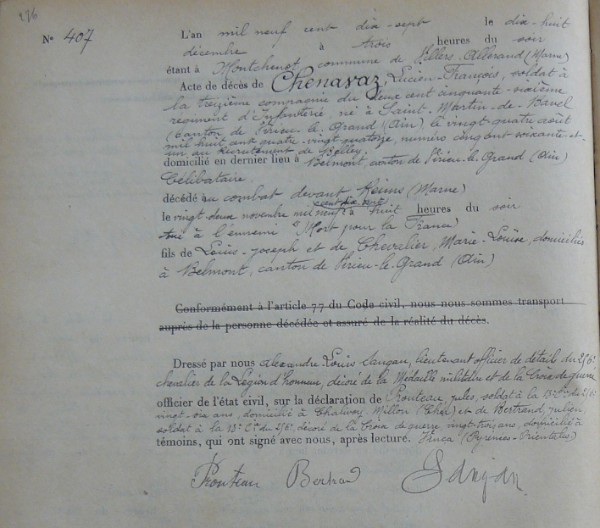 276
N° 407
L'an mil neuf cent dix-sept le dix-huit
décembre à trois heures du soir
étant à Montchenot commune de Villers-Allerand (Marne)
Acte de décès de Chenavaz, Lucien-François, soldat à
la treizième compagnie du deux cent cinquante-sixième
régiment d'Infanterie, né à Saint-Martin-de-Bavel
(Canton de Virieu-le-Grand (Ain), le vingt quatre août
mil huit cent quatre-vingt quatorze, numéro cinq cent soixante et
un au Recrutement de Belley.
domicilié en dernier lieu à Belmont, canton de Virieu-le-Grand (Ain)
Célibataire
décédé au combat devant Reims (Marne)
cent dix-sept
le vingt deux novembre mil neuf à huit heures du soir
tué à l'ennemi "Mort pour la France
fils de Louis-Joseph et de Chevalier, Marie-Louise, domiciliés
à Belmont, canton de Virieu-le-Grand (Ain)
Conformément à l'article 77 du Code civil, nous nous sommes transport
auprès de la personne décédée et assuré de la réalité du décès.
Dressé par nous Alexandre Louis Sangan, lieutenant officier de détail du 256e
chevalier de la Légion d'honneur, décoré de la Médaille militaire et de la Croix de guerre
officier de l'état civil, sur la déclaration de Prouteau, Jules, soldat à la 13e Cie du 256e
vingt-six ans, domicilié à (Cher) et de Bertrand,
soldat à la 13e Cie du 256e, décoré de la Croix de guerre vingt-trois ans, domicilié à
témoins, qui ont signé avec nous, après lecture. Vinca (Pyrénées-Orientales)
Prouteau Bertrand Sangan